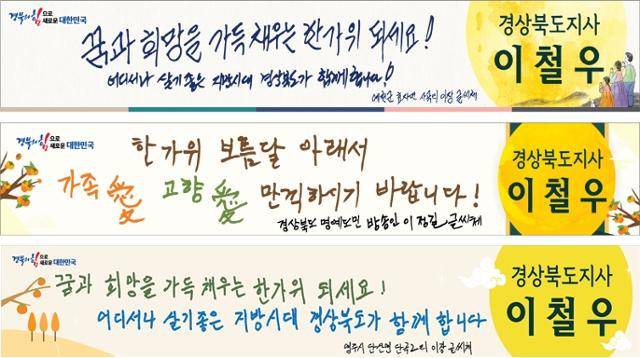 경북의 힘으로
새로운 대한민국
꿈과 희망을 가득 채우는 한가위 되세요!
어디서나 살기좋은 지방시대 경상북도가 함께합니다!
이장 글씨체
경상북도지사
이철우
경북의 힘으로
새로운 대한민국
한가위 보름달 아래서
가족 愛 고향 愛 만끽하시기 바랍니다!
경상북도 명예도민 방송인 이정길 글씨체
경상북도지사
이철우
경북의 힘으로
새로운 대한민국
꿈과 희망을 가득 채우는 한가위 되세요!
어디서나 살기좋은 지방시대 경상북도가 함께 합니다
영주시 단산면 단곡2리 이장 글씨체
경상북도지사
이철우